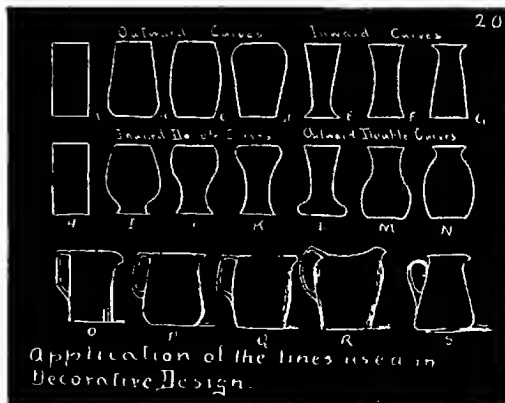 20
Outward Curves Inward Curves
E F G
Inward Double Curves Outward Double Curves
H I K L M N
O P Q R S
Application of the lines used in
Decorative Design.